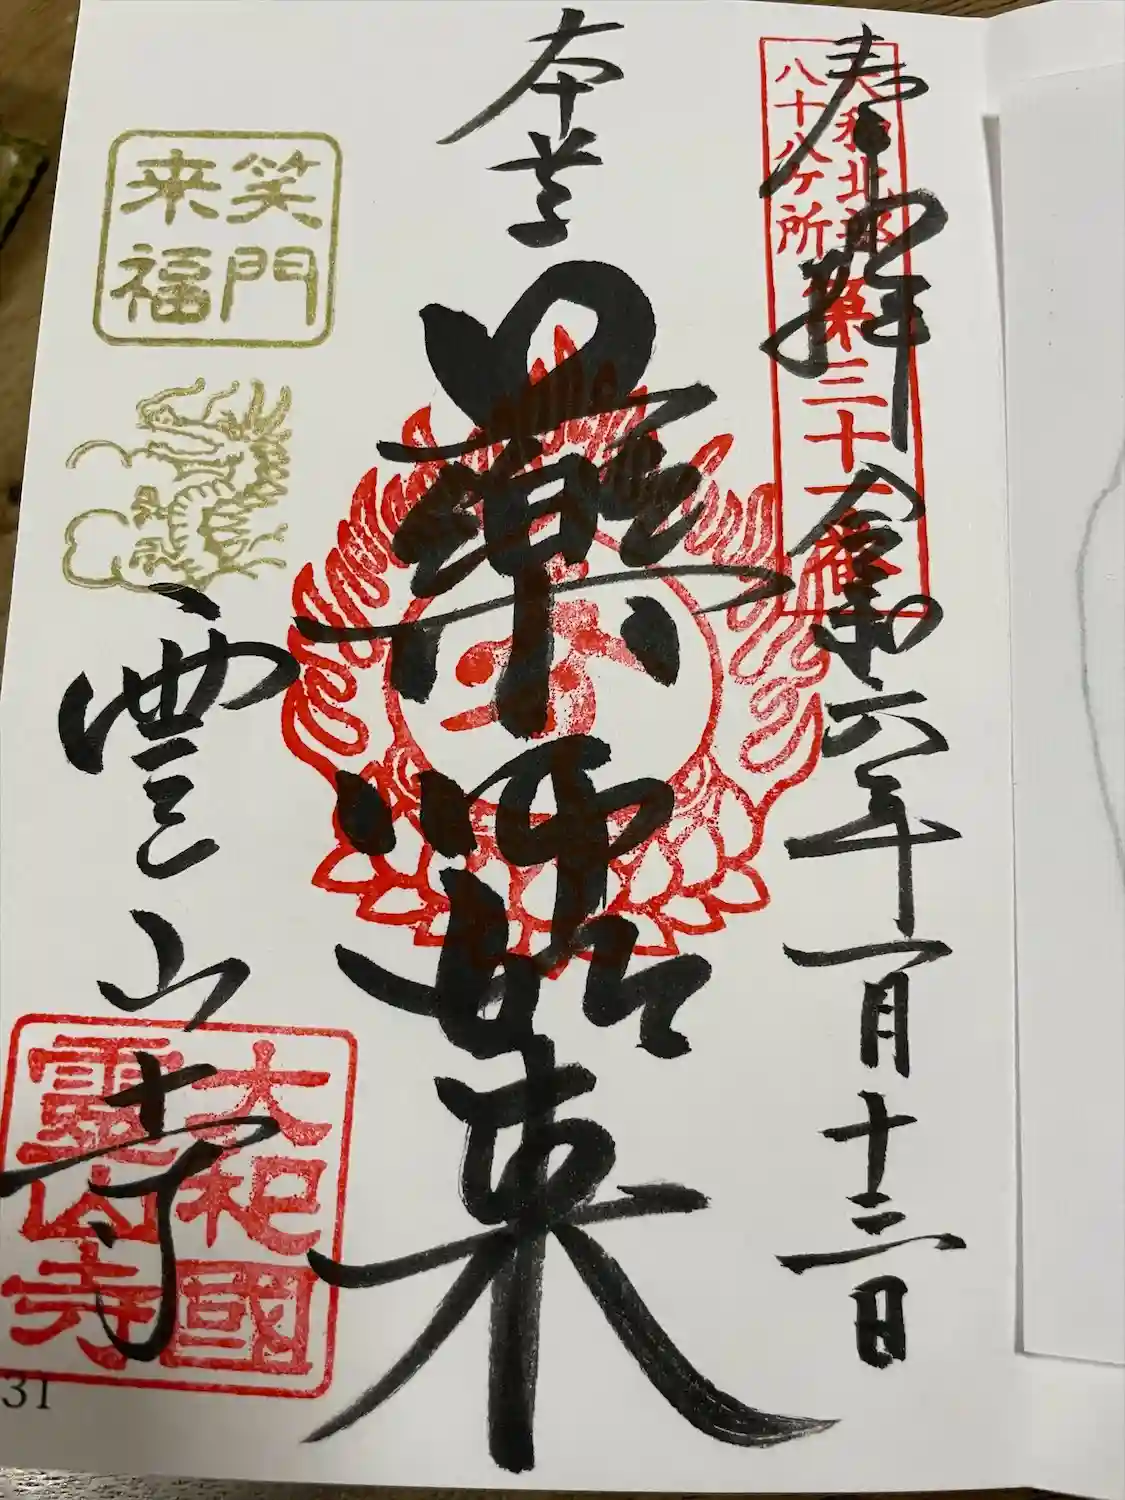 奉拝
令和六年一月十三日
大和北部
八十八ヶ所
第三十一番
本尊
薬師如来
笑門
来福
霊山寺
大和國
霊山寺
31